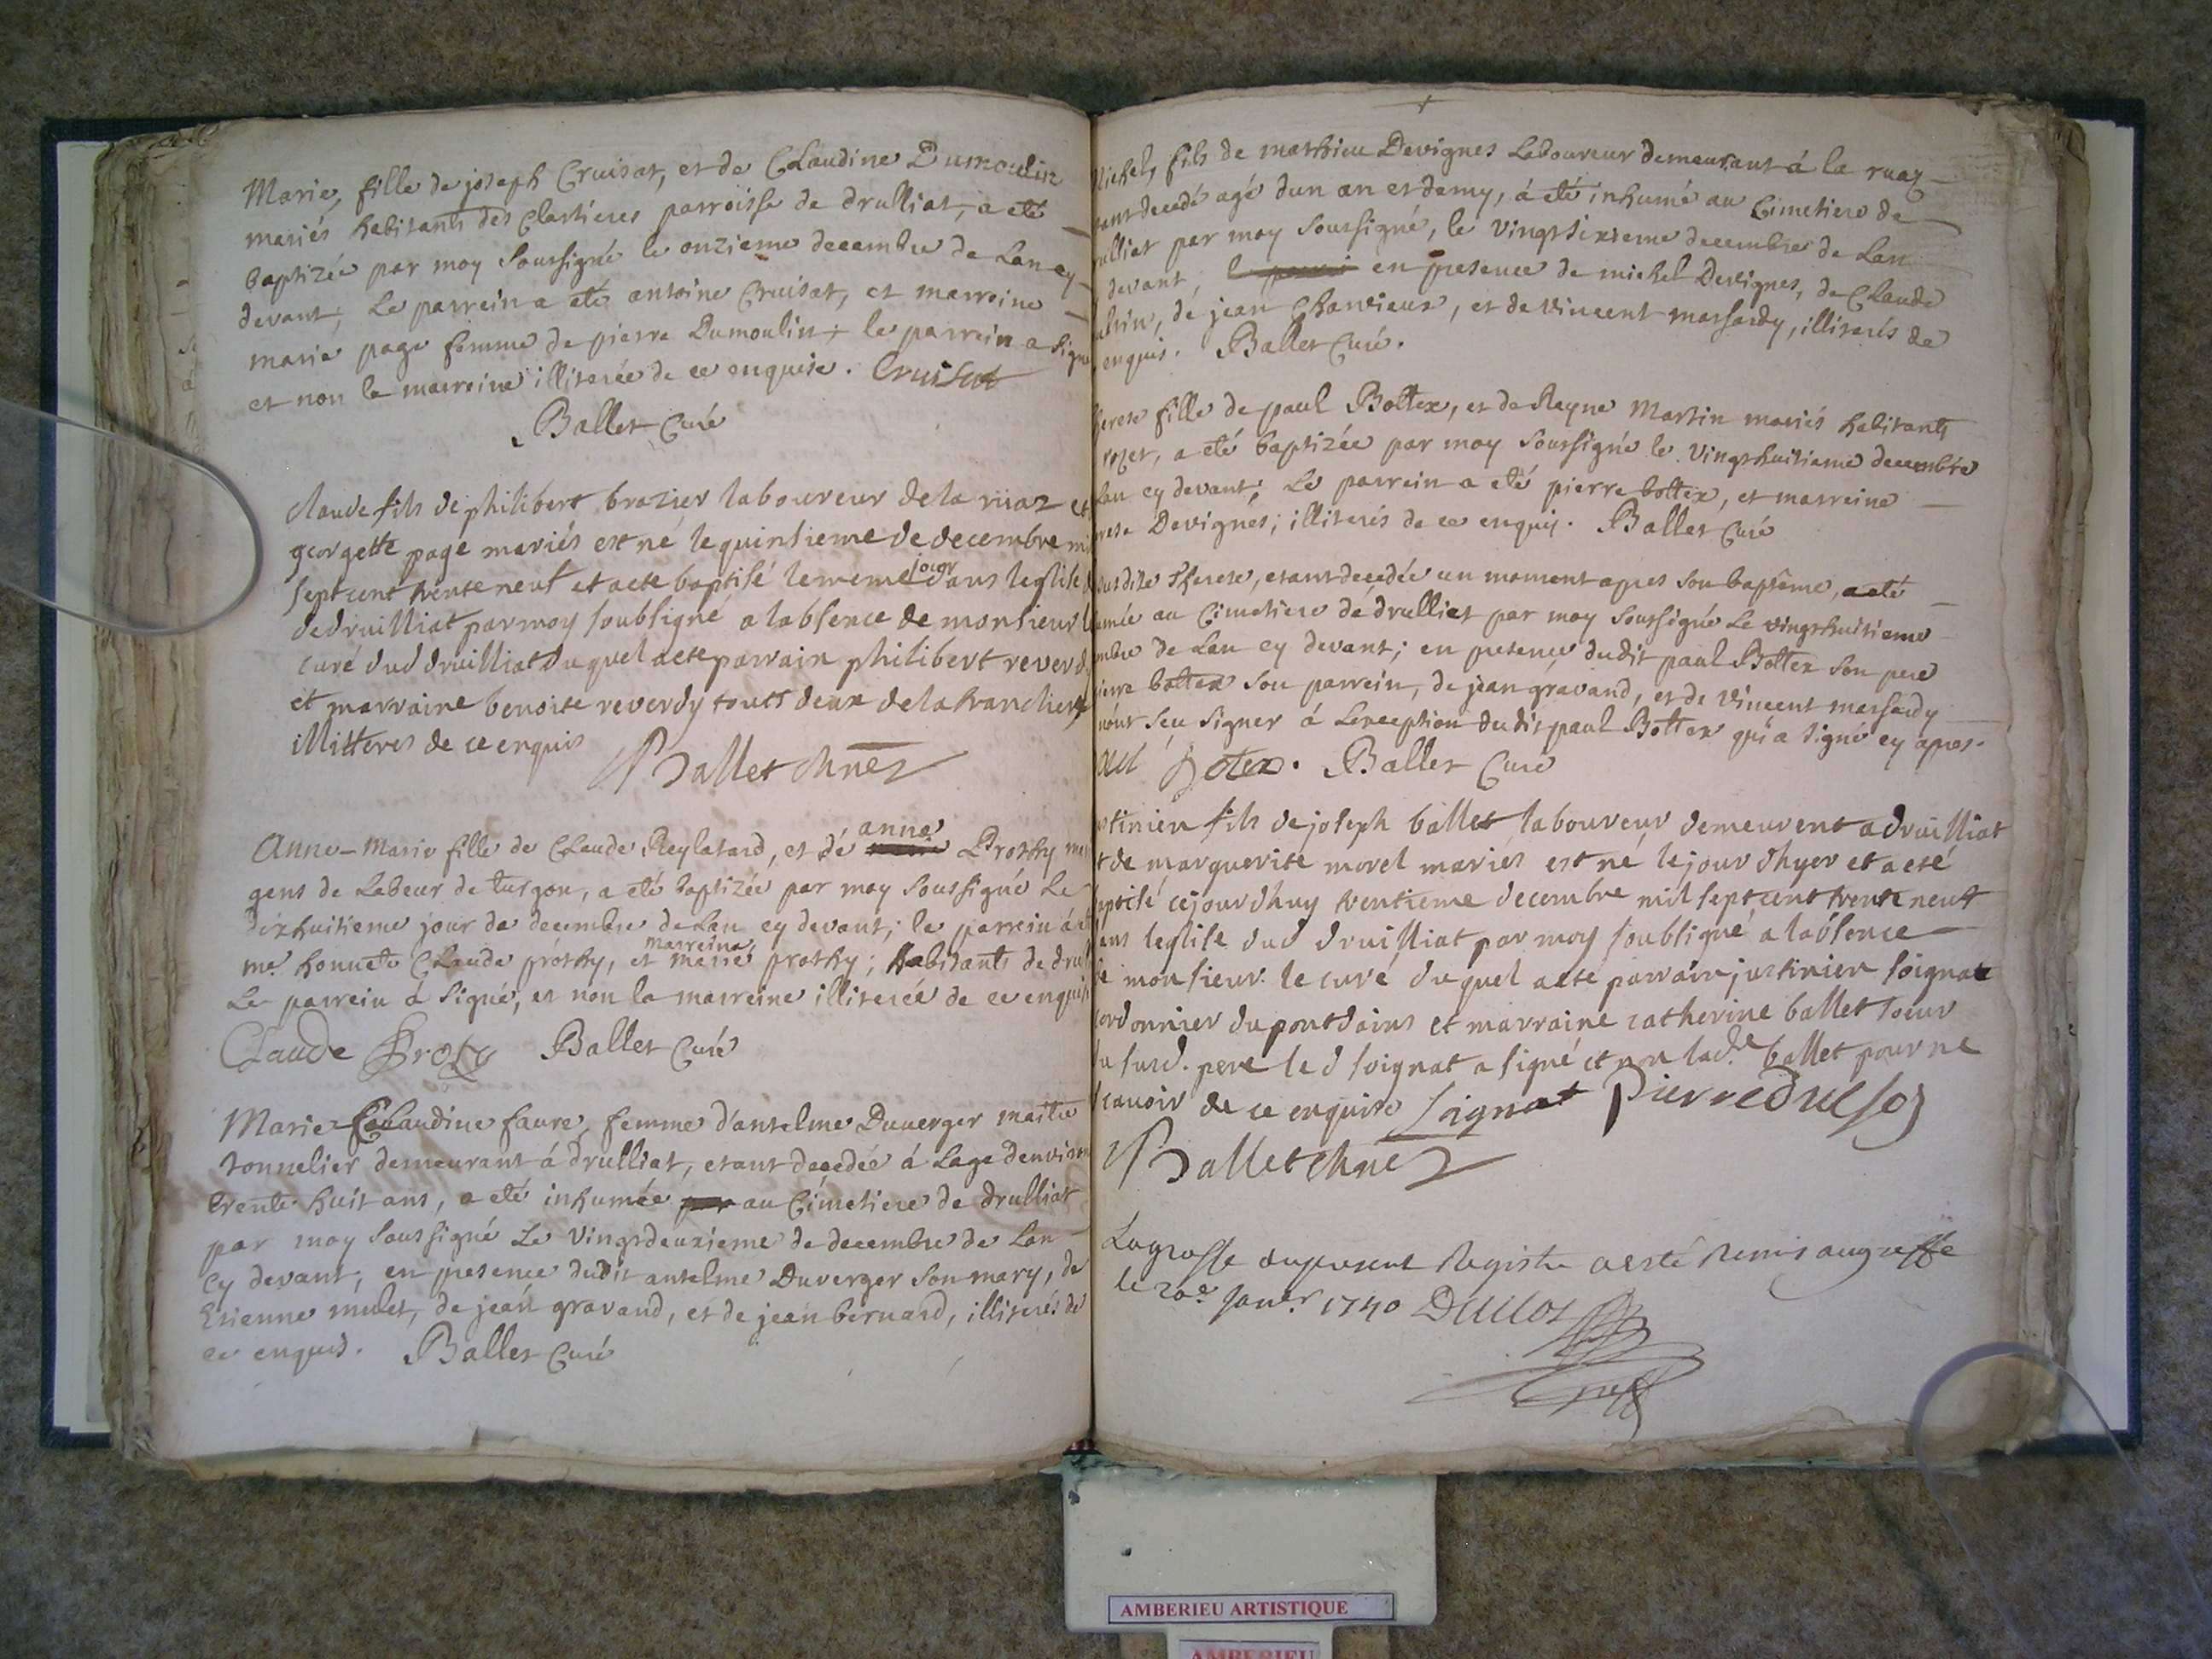 Marie, fille de joseph Cruisat, et de Claudine Dumoulin
mariés habitants des Clartieres parroisse de drulliat, a eté
baptizée par moy soussigné le onzieme decembre de Lan cy
devant; Le parrein a eté antoine Cruisat, et marreine
marie page femme de pierre Dumoulin; le parrein a signé
et non la marreine illiterée de ce enquise. Cruisat
Ballet Curé
claude fils de philibert brazier laboureur de la ruaz et
georgette page mariés est né le quinsieme de decembre mil
sept cent trente neuf et a ete baptisé le meme jour dans leglise
de druilliat par moy soubsigné a labsence de monsieur le
curé dud druilliat duquel a ete parrain philibert reverdy
et marraine benoite reverdy touts deux de la tranchiere
illitteres de ce enquis
Ballet chne
Anne-Marie fille de Claude Reylatard, et de anne Prothy
gens de Labeur de turgon, a eté baptizée par moy soussigné Le
dixhuitieme jour de decembre de Lan cy devant; le parrein a été
me. honnete Claude prothy, et marreine prothy; habitants de
Le parrein á signé, et non la marreine illiterée de ce enquise
Claude Proty Ballet Curé
Marie-Claudine faure, femme d'antelme Duverger maitre
tonnelier demeurant á drulliat, etant decedée á Lage denviron
trente-huit ans, a eté inhumée au Cimetiere de drulliat
par moy soussigné Le vingtdeuxieme de decembre de Lan
cy devant, en presence dudit antelme Duverger son mary, de
Etienne mulet, de jean gravand, et de jean bernard, illiterés de
ce enquis. Ballet Curé
Michel, fils de mathieu Devignes Laboureur demeurant á la ruaz
tant decedé agé dun an et demy, á eté inhumé au Cimetiere de
ulliat par moy soussigné, le vingtsixieme decembre de Lan
devant, en presence de michel Devignes, de Claude
de jean Charvieux, et de vincent massardy, illiterés de
enquis. Ballet Curé.
herese fille de paul Bottex, et de Reyne Martin mariés habitants
rozet, a eté baptizée par moy soussigné le vingthuitieme decembre
Lan cy devant; Le parrein a eté pierre bottex, et marreine
rese Devignes; illiterés de ce enquis. Ballet Curé
susdite Therese, etant decedée un moment apres son baptême, a eté
umée au Cimetiere de drulliat par moy soussigné Le vingthuitieme
mbre de Lan cy devant; en presence dudit paul Bottex son pere
ierre bottex son parrein, de jean gravand, et de vincent massardy
n'ont sçu signer á Lexception dudit paul Bottex qui a signé cy apres.
aul Botex. Ballet Curé
stinien fils de joseph ballet laboureur demeurent a druilliat
t de marguerite morel mariés est né le jour dhyer et a eté
aptisé cejourdhuy trentieme decembre mil sept cent trente neuf
ans leglise dud druilliat par moy soubsigné a labsence
de monsieur le curé duquel a eté parrain justinien soignat
cordonnier du pontdains et marraine catherine ballet soeur
du susd. pere led soignat a signé et non lad.te ballet pour ne
scavoir de ce enquise Soignat
Ballet chne
La grosse du present Registre a esté remis au greffe
le 20e janvr 1740 Duclos
AMBERIEU ARTISTIQUE
AMBERIEU